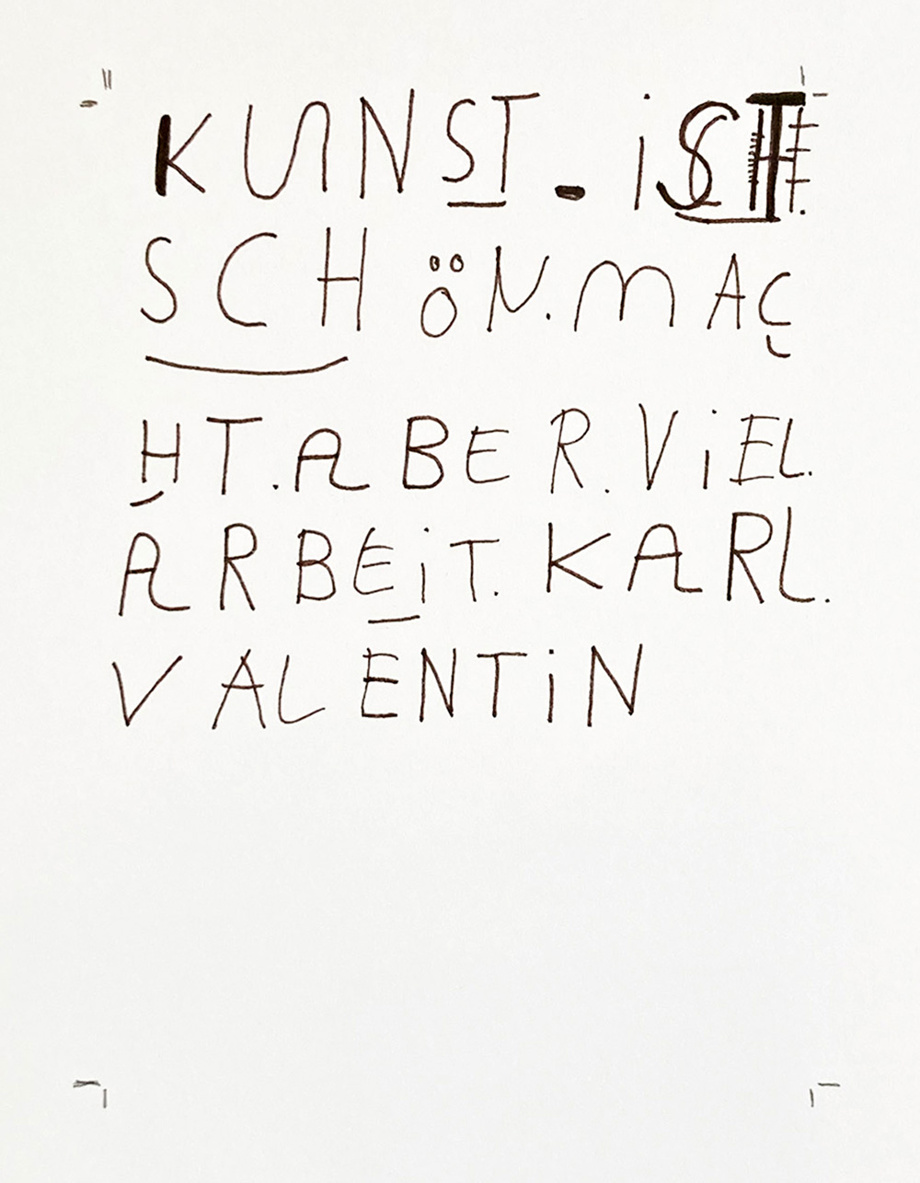 KUNST. iST
SCHÖN.MAC
HT.ABER.ViEL.
ARBEiT.KARL.
VALENTiN